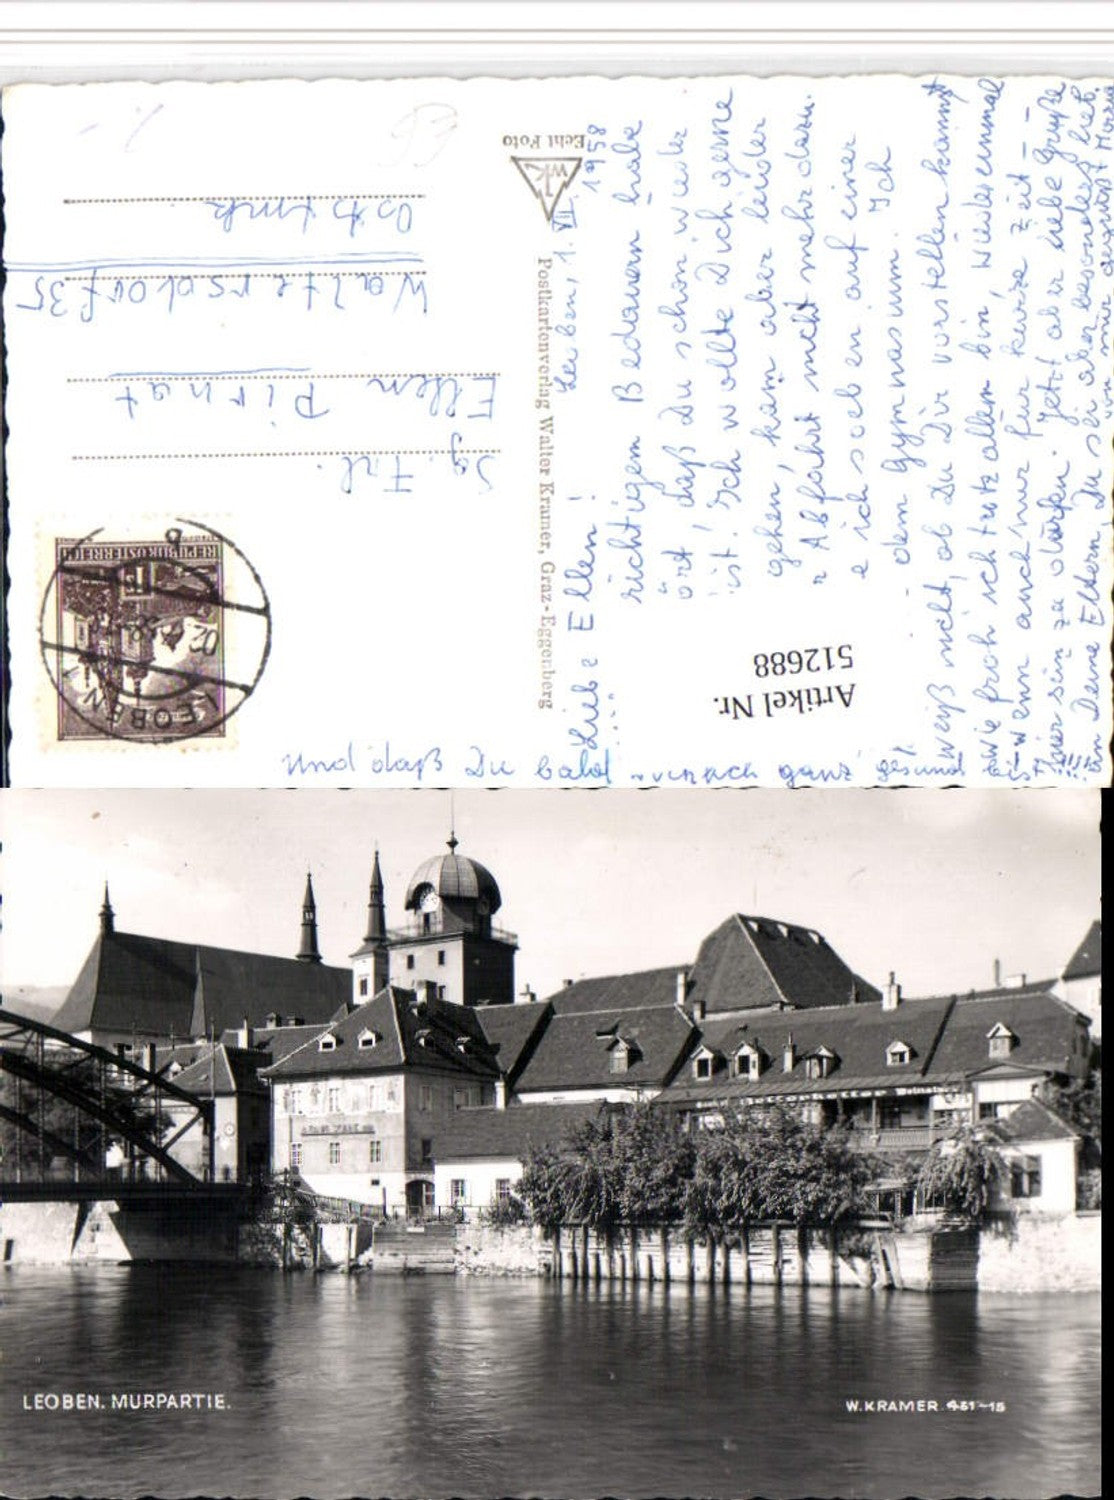 Leoben, 1. VII. 1958
Liebe Ellen!
richtigem Bedauern habe
ört, daß Du schon wieder
ist! Ich wollte Dich gerne
gehen, kam aber leider
r Abfahrt nicht mehr dazu.
e ich soeben auf einer
dem Gymnasium. Ich
weiß nicht, ob Du Dir vorstellen kannst
wie froh ich trotz allem bin, wiedereinmal
- wenn auch nur für kurze Zeit -
hier sein zu dürfen. Jetzt aber liebe Grüße
an Deine Eltern, Du sei aber besonders lieb
von mir gegrüßt
und daß Du bald ganz gesund
Echt Foto
WK
Postkartenverlag Walter Kramer, Graz-Eggenberg
REPUBLIK ÖSTERREICH
LEOBEN 1
Sg. Frl.
Ellen Pirnat
Waltersdorf 35
Oststmk
Artikel Nr.
512688
LEOBEN. MURPARTIE.
W. KRAMER. 451-15